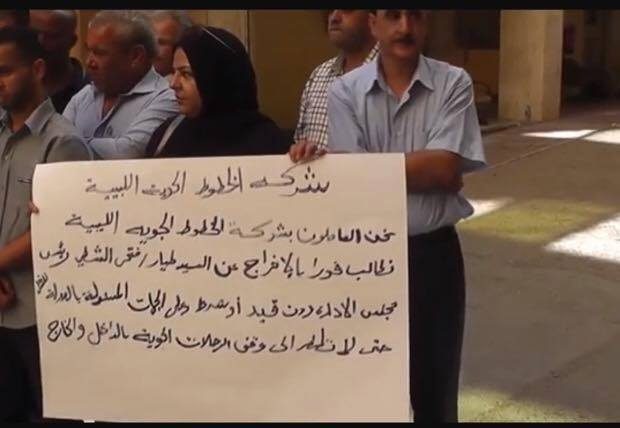 شركة الخطوط الجوية الليبية
نحن العاملون بشركة الخطوط الجوية الليبية
نطالب فورا بالإفراج عن السيد طيار/ فتحي الشطي رئيس
مجلس الادارة دون قيد أو شرط وعلى الجهات المسئولة بالدولة
حتى لا نضطر الى وقف الرحلات الجوية بالداخل والخارج